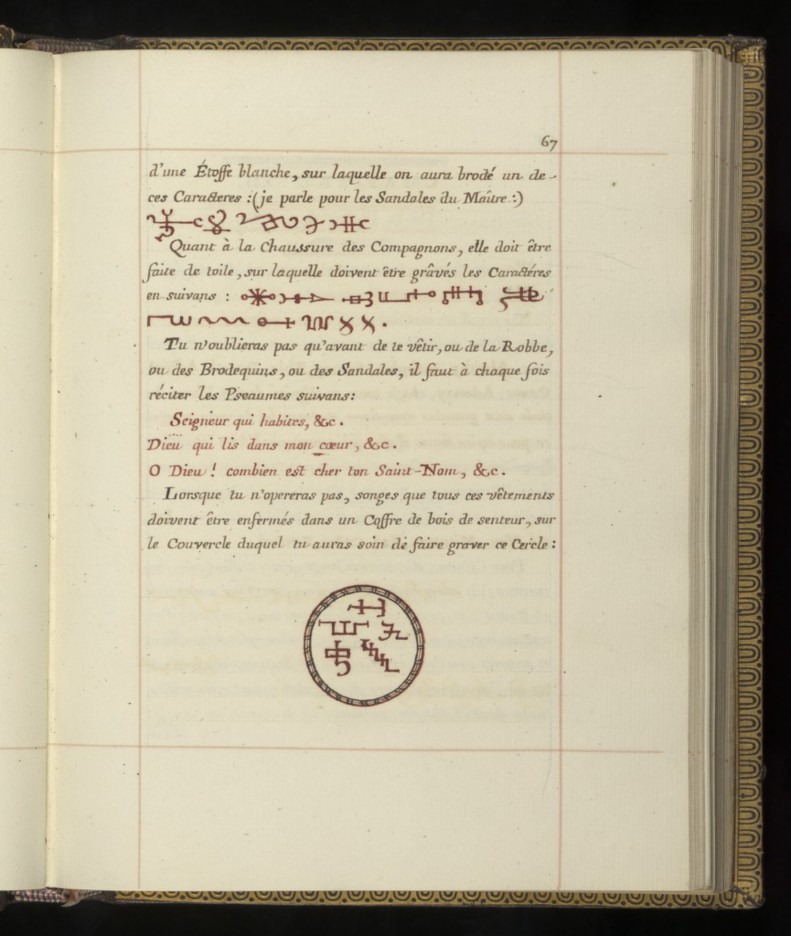 67
d'une Étoffe blanche, sur laquelle on aura brodé un de-
ces Caracteres :(je parle pour les Sandales du Maître :)
Quant à la Chaussure des Compagnons, elle doit être
faite de toile, sur laquelle doivent être grâvés les Caractéres
en suivans :
Tu n'oublieras pas qu'avant de te vêtir, ou de la Robbe,
ou des Brodequins, ou des Sandales, il faut à chaque fois
réciter les Pseaumes suivans:
Seigneur qui habites, &c.
Dieu qui lis dans mon cœur, &c.
O Dieu ! combien est cher ton Saint-Nom, &c.
Lorsque tu n'opereras pas, songes que tous ces vêtements
doivent être enfermés dans un Coffre de bois de senteur, sur
le Couvercle duquel tu auras soin de faire graver ce Cercle :